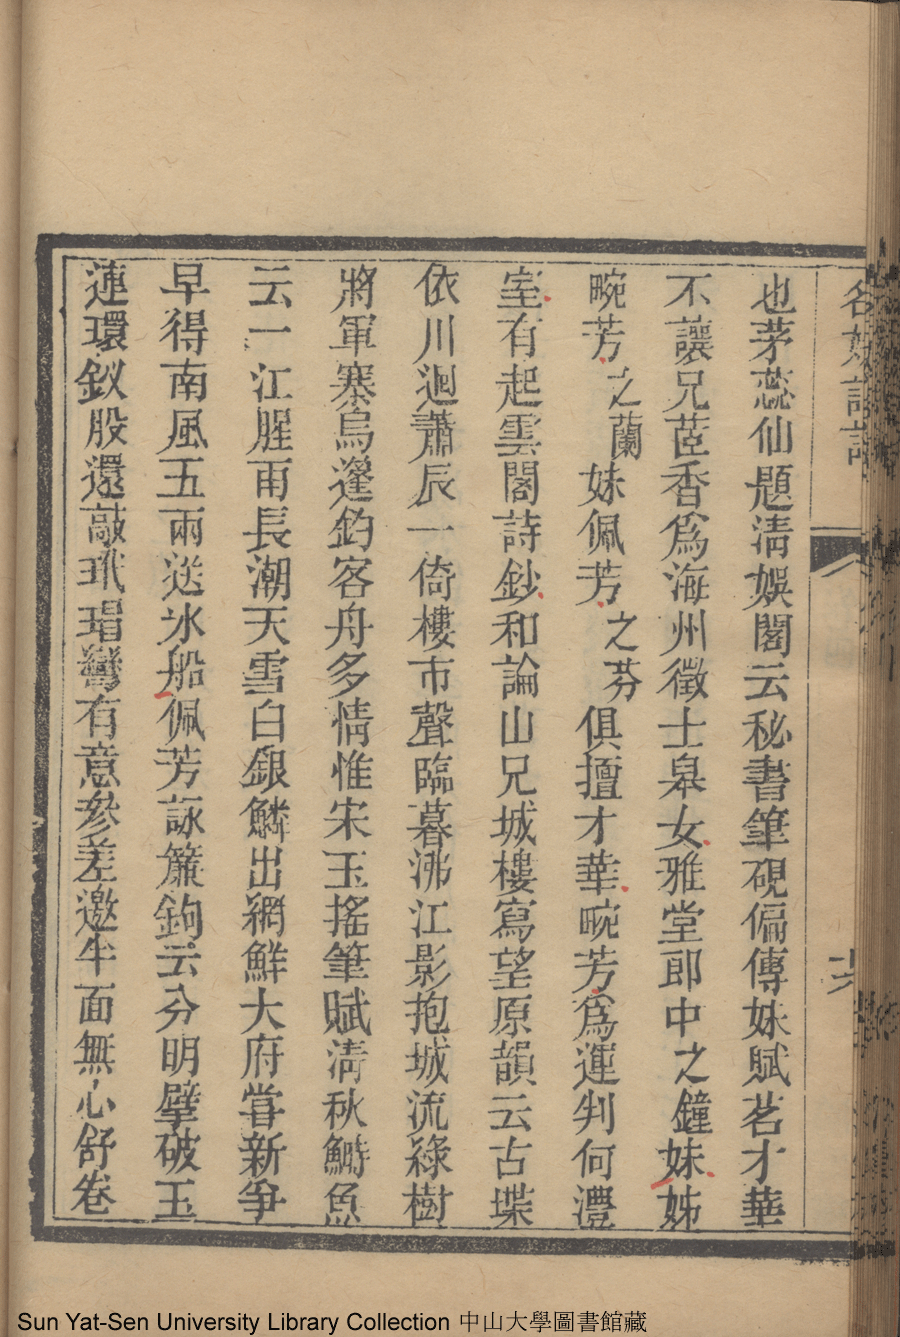 名媛詩話
也茅蕊仙題清娛閣云秘書筆硯偏傳妹賦茗才華
不讓兄茝香爲海州徵士皋女雅堂郎中之鐘妹姊
畹芳之蘭妹佩芳之芬俱擅才華畹芳爲運判何澧
室有起雲閣詩鈔和論山兄城樓寫望原韻云古堞
依川迴肅辰一倚樓市聲臨暮沸江影抱城流綠樹
將軍寨烏篷釣客舟多情惟宋玉搖筆賦清秋鰣魚
云一江腥雨長潮天雪白銀鱗出網鮮大府嘗新爭
早得南風五兩送冰船佩芳詠簾鉤云分明擘破玉
連環釵股還敲玳瑁彎有意參差邀半面無心舒卷
Sun Yat-Sen University Library Collection 中山大學圖書館藏